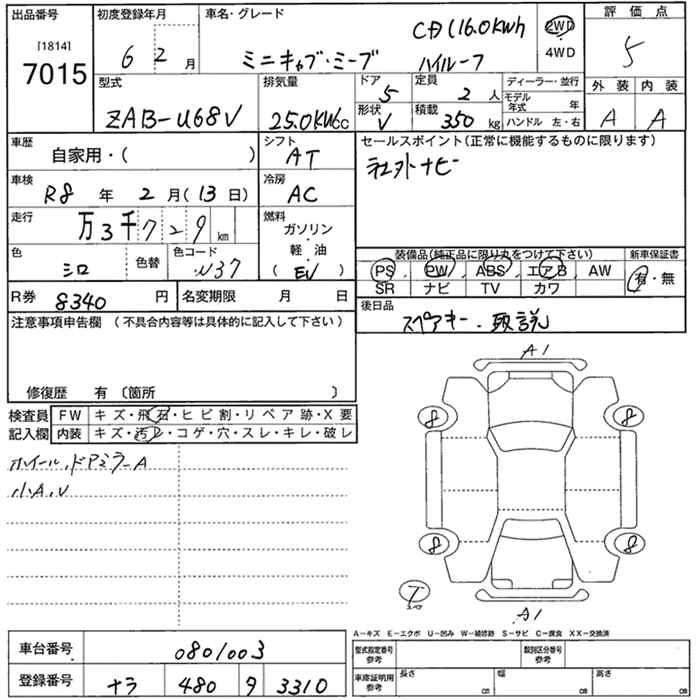 出品番号 初度登録年月 車名・グレード CD (16.0kWh 2WD 評価点
[1814] 6 2 月 ミニキャブ・ミーブ ハイルーフ 4WD 5
7015
型式 排気量 ドア 5 定員 2 人 ディーラー・並行 外装 内装
ZAB-U68V 25.0KWcc 形状 V 積載 350 kg モデル年式 年 A A
ハンドル 左・右
車歴 自家用・( ) シフト AT セールスポイント(正常に機能するものに限ります)
車検 R8 年 2 月(13日) 冷房 AC 社外ナビー
走行 万3千729km 燃料 ガソリン・軽・油 (EV)
色 シロ 色替 色コード W37 装備品(純正品に限り丸をつけて下さい) 新車保証書
PS PW ABS エアB AW 有・無
SR ナビ TV カワ
R券 8340 円 名変期限 月 日 後日品
スペアキー・取説
注意事項申告欄 (不具合内容等は具体的に記入して下さい)
修復歴 有〔箇所 〕
検査員 FW キズ・飛石・ヒビ割・リペア跡・X要
記入欄 内装 キズ・汚レ・コゲ・穴・スレ・キレ・破レ
ホイール、ドアミラーA
小A、U
A1
8 8
8 8
T
スペア
A1
A-キズ E-エクボ U-凹み W-補修跡 S-サビ C-腐食 XX-交換済
車台番号 0801003 型式指定番号 参考 類別区分番号 参考
登録番号 ナラ 480 ９ 3310 車庫証明用 参考 長さ cm 幅 cm 高さ cm